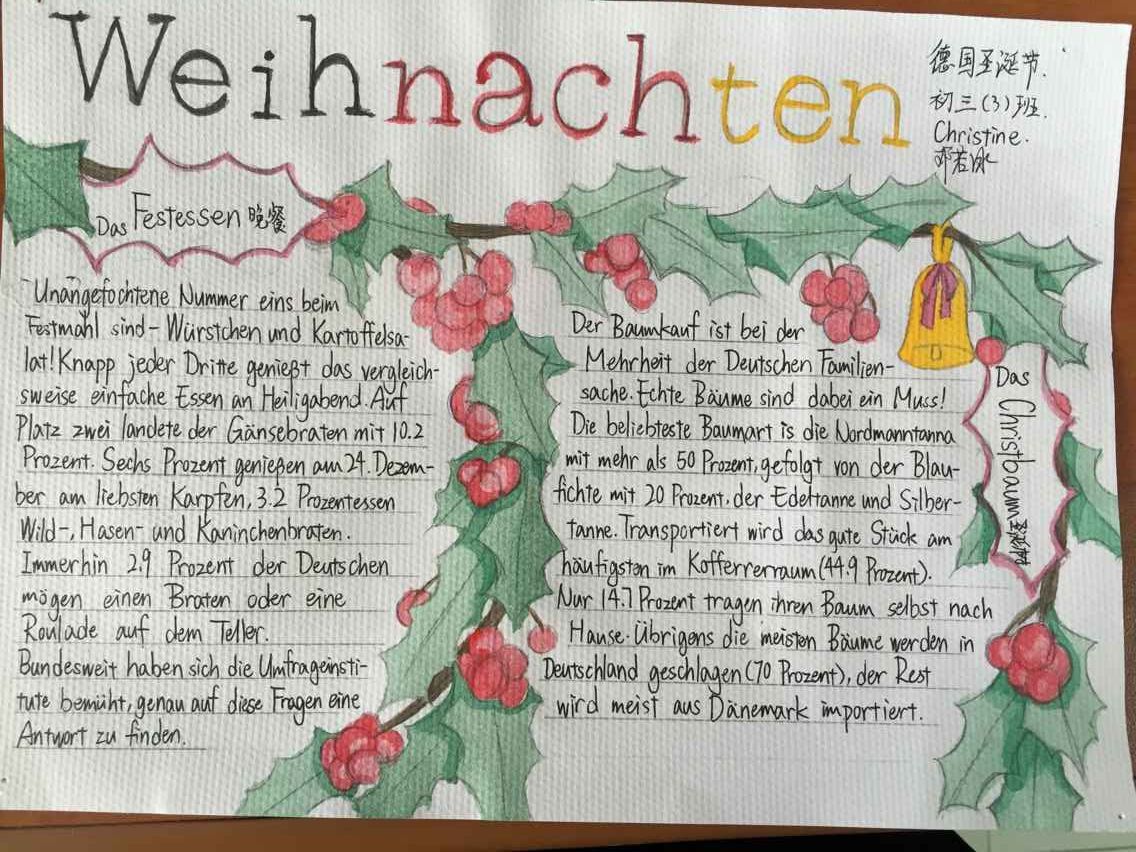 Weihnachten
德国圣诞节.
初三(3)班.
Christine.
邓若冰
Das Festessen 晚餐
Unangefochtene Nummer eins beim
Festmahl sind - Würstchen und Kartoffelsa-
lat! Knapp jeder Dritte genießt das vergleich-
sweise einfache Essen an Heiligabend. Auf
Platz zwei landete der Gänsebraten mit 10.2
Prozent. Sechs Prozent genießen am 24. Dezem-
ber am liebsten Karpfen, 3.2 Prozentessen
Wild-, Hasen- und Kaninchenbraten.
Immerhin 2.9 Prozent der Deutschen
mögen einen Braten oder eine
Roulade auf dem Teller.
Bundesweit haben sich die Umfrageinsti-
tute bemüht, genau auf diese Fragen eine
Antwort zu finden.
Das Christbaum 圣诞树
Der Baumkauf ist bei der
Mehrheit der Deutschen Familien-
sache. Echte Bäume sind dabei ein Muss!
Die beliebteste Baumart is die Nordmanntanna
mit mehr als 50 Prozent, gefolgt von der Blau-
fichte mit 20 Prozent, der Edeltanne und Silber-
tanne. Transportiert wird das gute Stück am
häufigsten im Kofferrerraum (44.9 Prozent).
Nur 14.7 Prozent tragen ihren Baum selbst nach
Hause. Übrigens die meisten Bäume werden in
Deutschland geschlagen (70 Prozent), der Rest
wird meist aus Dänemark importiert.